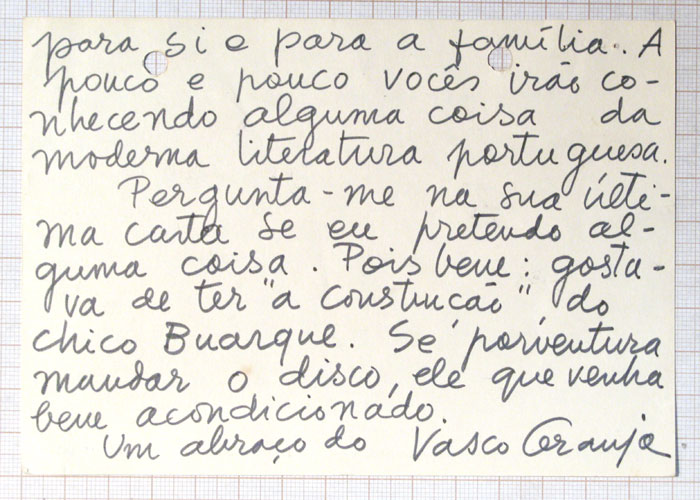 para si e para a família.. A
pouco e pouco vocês irão co-
nhecendo alguma coisa da
moderna literatura portuguesa.
Pergunta-me na sua últi-
ma carta se eu pretendo al-
guma coisa. Pois bem: gosta-
va de ter "a construcão", do
chico Buarque. Se porventura
mandar o disco, ele que venha
bem acondicionado.
Um abraço do Vasco Granja